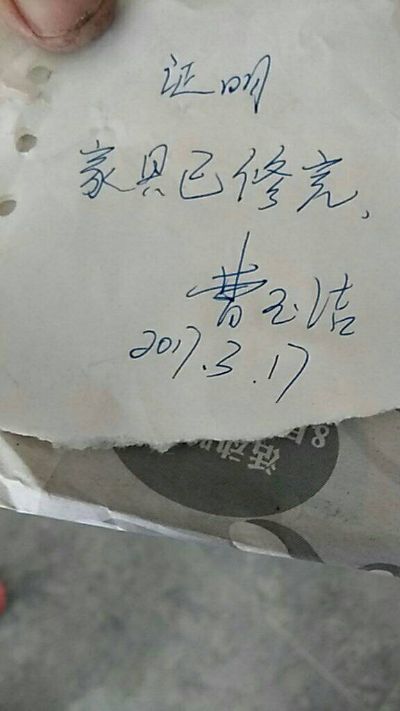 证明
家具已修完、
曹玉洁
2017.3.17
活动
8月